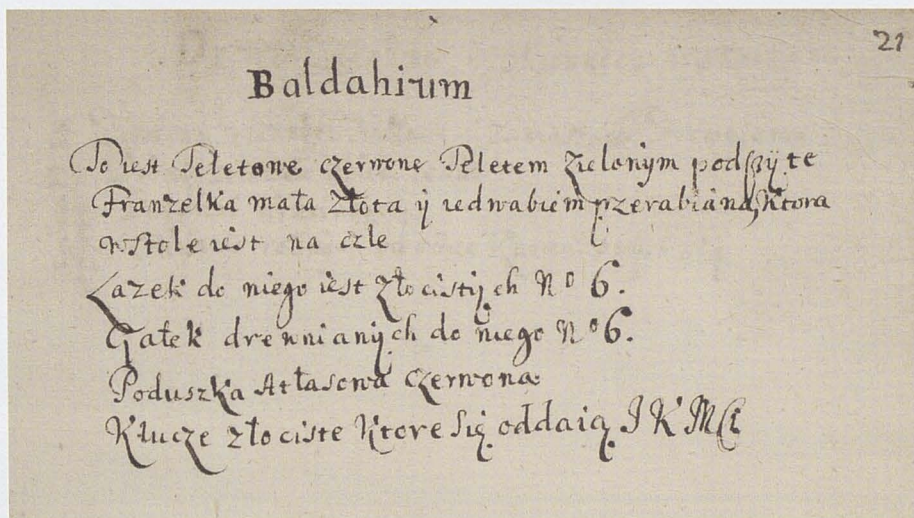 21
Baldahium
To iest Teletowe czerwone Teletem zielonym podszÿte
Franzelka mała złota ÿ iedwabiem przerabiana, ktora
w stole iest na czle
Lazek do niego iest złocistÿch No 6.
Gałek drewnianÿch do niego No 6.
Poduszka Atłasowa czerwona.
Klucze złociste ktore się oddaią J K MCi